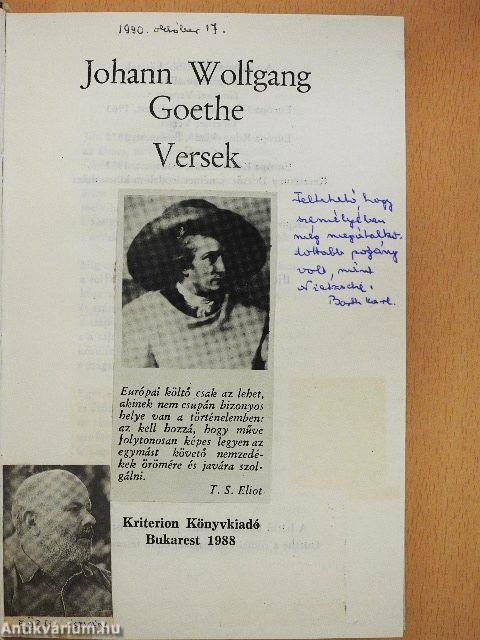 1990. október 17.
Johann Wolfgang
Goethe
Versek
Feltehető, hogy
személyében
még megátalko-
dottabb pogány
volt, mint
Nietzsche.
Barth Karl.
Európai költő csak az lehet,
akinek nem csupán bizonyos
helye van a történelemben:
az kell hozzá, hogy műve
folytonosan képes legyen az
egymást követő nemzedé-
kek örömére és javára szol-
gálni.
T. S. Eliot
Kriterion Könyvkiadó
Bukarest 1988
Antikvárium.hu